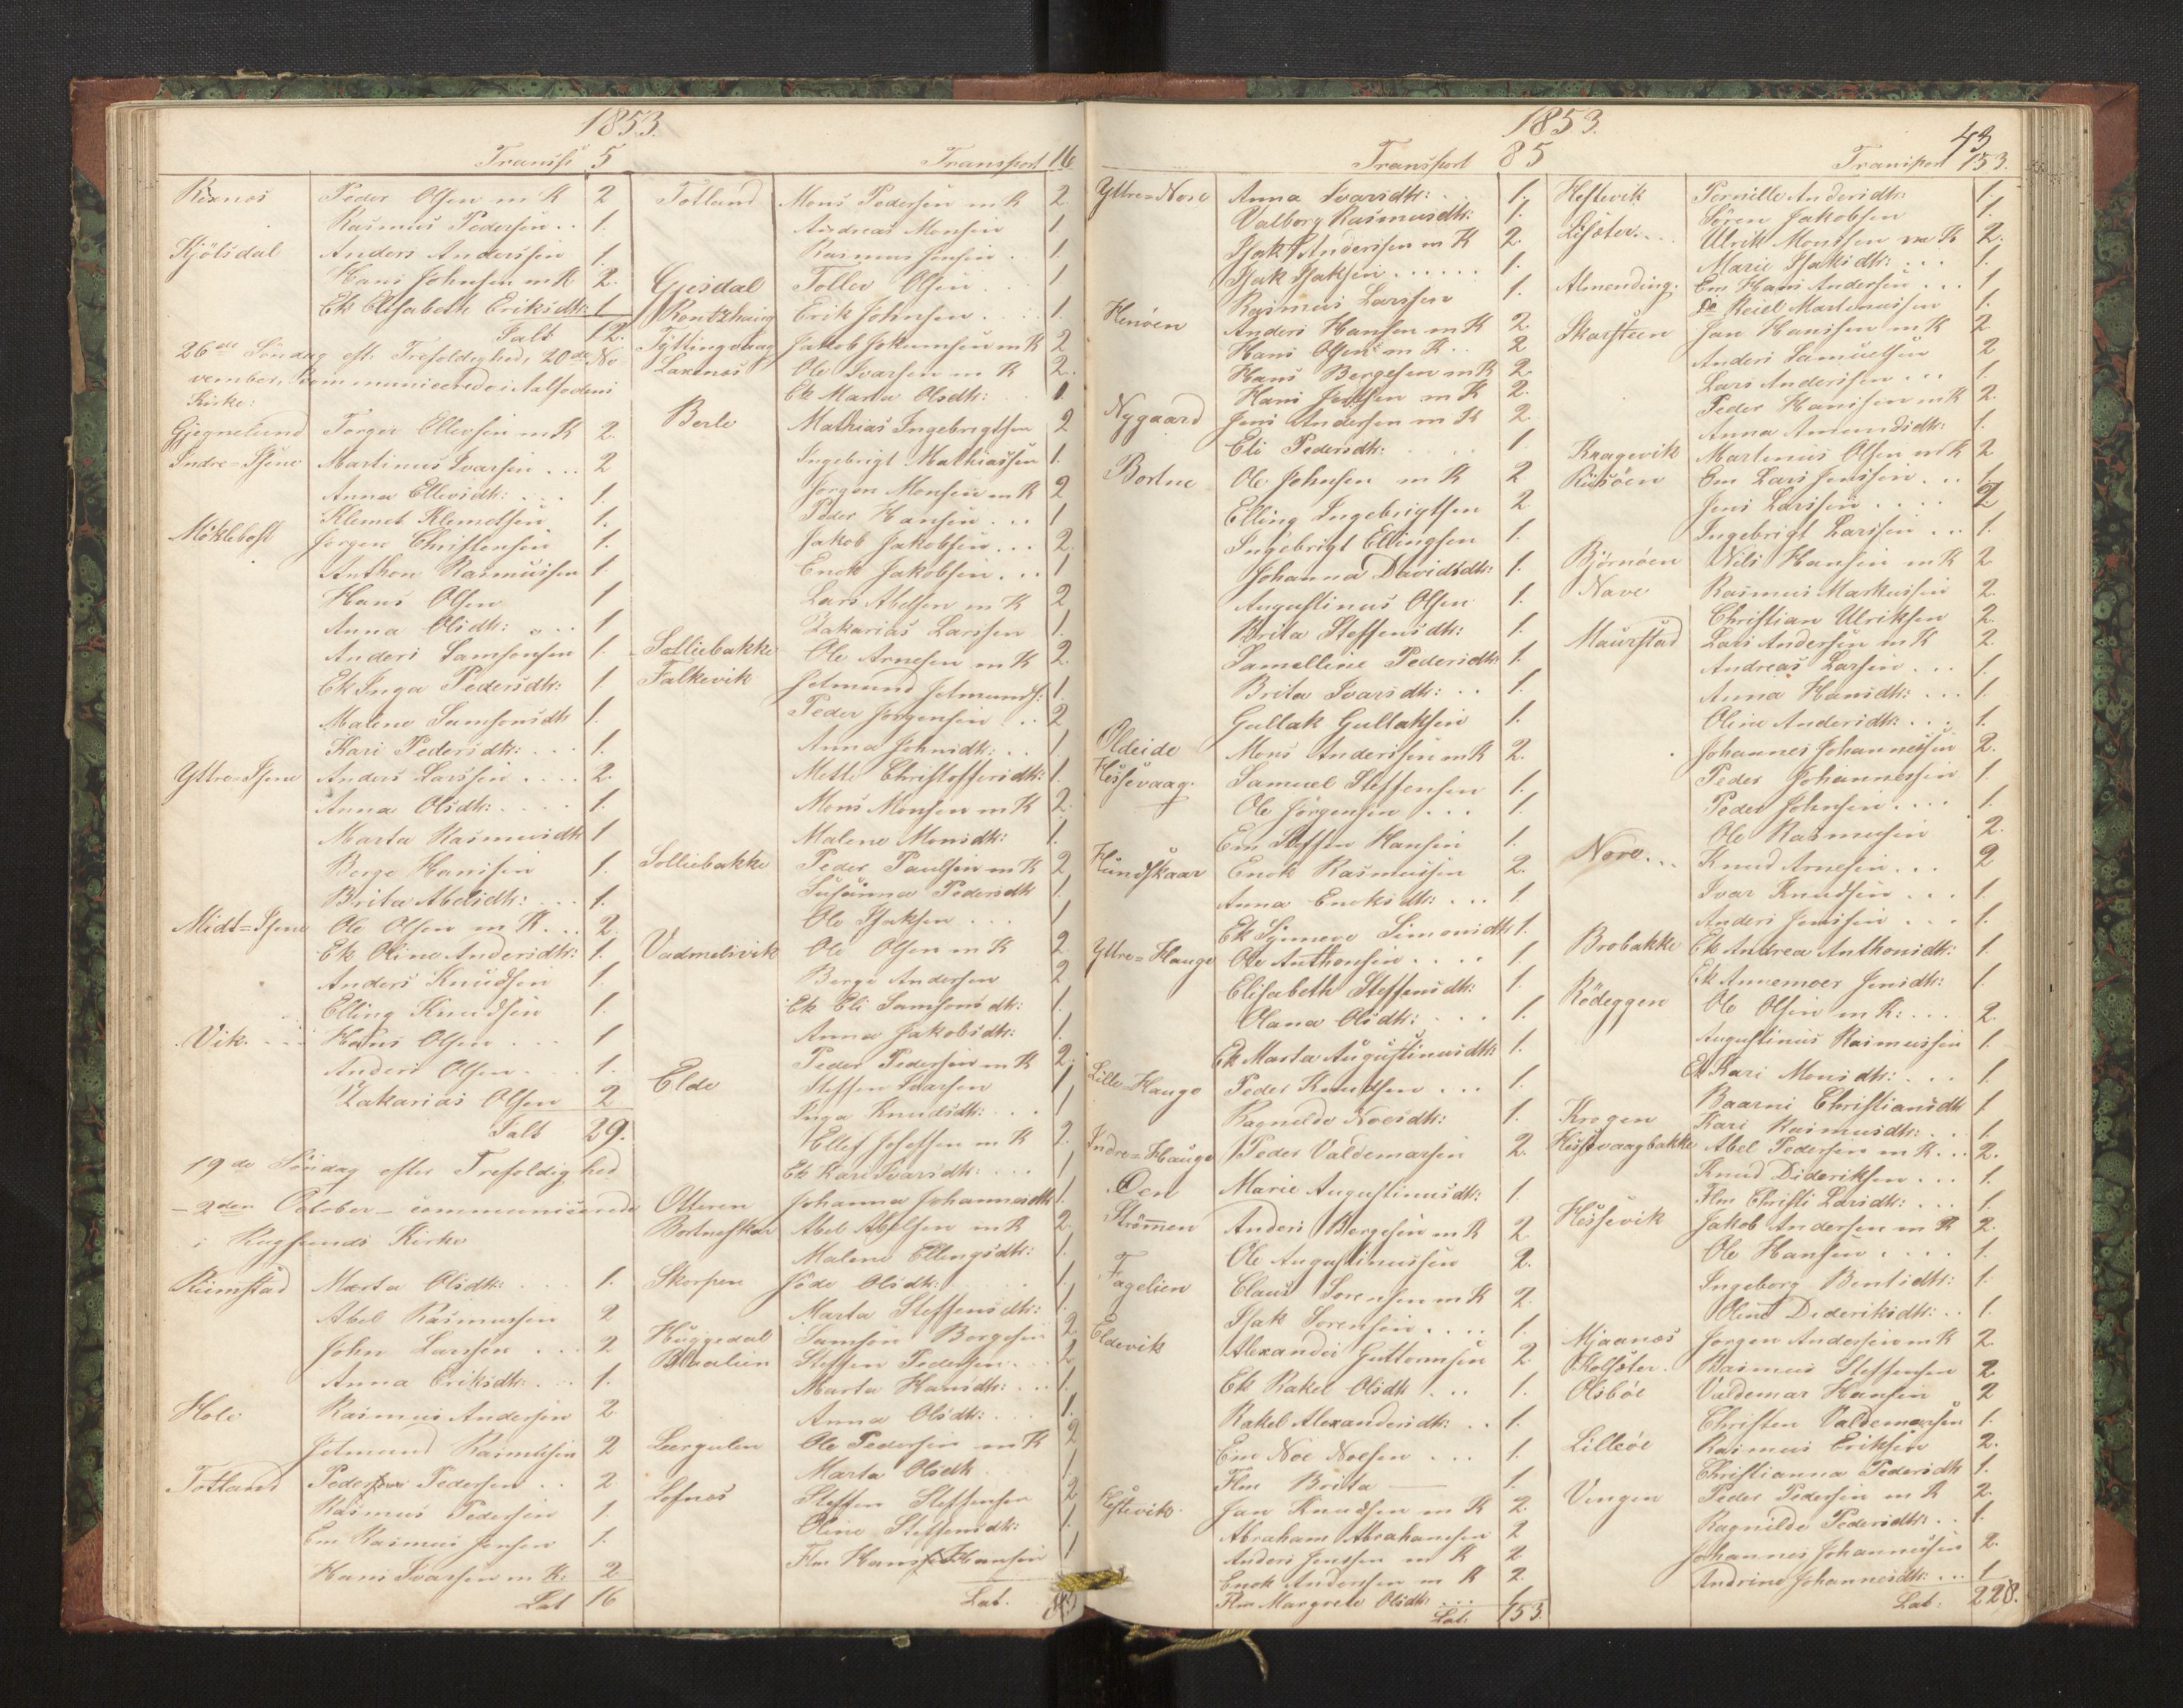 1853.
Transp. 5
Rixnæs Peder Olsen m K 2
Rasmus Pedersen .. 1.
Kjölsdal Anders Anderssen 1.
Hans Johnsen m K 2.
Ek Elisabeth Eriksdtr: 1
Talt 12.
26de Söndag eft. Trefoldighed, 20de No-
vember, communicerede i Aalfodens
Kirke:
Gjegnelund Torger Ellevsen m K 2.
Indre=Isene Martinus Ivarsen ... 2
Anna Ellevsdtr: ... 1.
Klemet Klemetsen 1.
Möklebost Jørgen Christensen 1.
Anthon Rasmussen 1.
Hans Olsen 1
Anna Olsdtr: ... 1
Anders Samsonsen 1.
Ek Inga Pedersdtr: 1.
Malene Samsonsdtr 1.
Kari Pedersdtr: ... 1.
Yttre=Isene Anders Larssen .... 2.
Anna Olsdtr: .... 1.
Marta Rasmusdtr 1
Berge Hanssen 1.
Brita Abelsdtr: ... 1.
Midt=Isene Ole Olsen m K. .. 2.
Ek Oline Andersdtr: 1.
Anders Knudsen 1.
Elling Knudsen 1.
Vik. ... Hans Olsen ... 1
Anders Olsen ... 1.
Zakarias Olsen 2
Talt 29.
19de Söndag efter Trefoldighed
- 2den October - communicerede
i Rugsunds Kirke
Rimstad Marta Olsdtr: ... 1.
Abel Rasmussen 2
John Larssen ... 2
Anna Eriksdtr. ... 1.
Hole Rasmus Andersen 2.
Jetmund Rasmussen 2
Totland Peder Pedersen .. 2
Rasmus Pedersen 1.
Em Rasmus Jensen 1.
Hans Ivarsen m K: 2
Lat 16
Transport 16
Totland Mons Pedersen m K 2.
Andreas Monsen 1
Rasmus Jensen . 1.
Gjesdal Tollev Olsen ... 1
Rontzhaug Erik Johnsen .... 1.
Tyttingvaag Jakob Jokumsen m K 2
Laxenæs Ole Ivarsen m K 2.
Ek Marta Olsdtr: .. 1.
Berle Mathias Ingebrigtsen 2
Ingebrigt Mathiassen 1.
Jørgen Monsen m K 2
Peder Hansen ... 1
Jakob Jakobsen ... 2.
Enok Jakobsen ... 1
Lars Abelsen m K 2
Zakarias Larssen 1.
Solliebakke Ole Arnesen m K 2.
Falkevik Jetmund Jetmunds: 1.
Peder Jørgensen .. 2
Anna Johnsdtr: .. 1.
Mette Christoffersdtr: 1.
Mons Monsen m K 2.
Malene Monsdtr: 1.
Solliebakke Peder Paulsen m K 2
Susanna Pedersdtr 1.
Ole Isaksen ... 1
Vadmelsvik Ole Olsen m K 2
Berge Andersen 2
Ek Eli Samsonsdtr: 1.
Anna Jakobsdtr: 1.
Peder Pedersen m K 2.
Elde Steffen Ivarsen 1.
Inga Knudsdtr: ... 1
Ellef Josefsen m K 2.
Ek Kari Ivarsdtr: ... 1
Otteren Johanna Johannesdtr 1.
Bortneskar Abel Abelsen m K 2.
Malene Ellingsdtr: 1.
Skorpen Jöde Olsdtr: ... 1.
Marta Steffensdtr: 1.
Huggedal Samson Borgesen 2.
Blaalien Steffen Pedersen ... 2.
Marta Hansdtr: ... 1.
Anna Olsdtr: ... 1.
Leergulen Ole Pedersen m K 2
Marta Olsdtr 1
Lofnæs Steffen Steffensen 2
Oline Steffensdtr: 1.
Flm Hans Hansen 1
Lat. 85
1853.
43
Transport 85
Yttre=Nore Anna Ivarsdtr: .. 1.
Valborg Rasmusdtr: 1.
Isak Anderssen m K 2.
Isak Isaksen ...... 1.
Rasmus Larssen 1.
Henøen Anders Hansen m K 2
Hans Olsen m K .. 2
Hans Bergesen m K 2.
Hans Jensen m K 2.
Nygaard Jens Andersen m K 2
Eli Pedersdtr: .... 1
Bortne Ole Johnsen m K 2
Elling Ingebrigtsen 2.
Ingebrigt Ellingsen 1.
Johanna Davidsdtr: 1.
Augustinus Olsen 1.
Brita Steffensdtr: 1.
Samelline Pedersdtr 1.
Brita Ivarsdtr: .. 1.
Gullak Gullaksen 1.
Oldeide Mons Anderssen m K 2.
Hessevaag. Samuel Steffensen 1.
Ole Jörgensen ... 1.
Em Steffen Hansen 1.
Hundskaar Enok Rasmussen 2.
Anna Enoksdtr: ... 1.
Ek Synneve Simonsdtr 1.
Yttre=Hauge Ole Anthonsen .... 1.
Elisabeth Steffensdtr: 1.
Olana Olsdtr: ... 1.
Ek Marta Augustinusdtr: 1.
Lille=Hauge Peder Knudsen ... 1.
Ragnilde Noesdtr: 1.
Indre=Hauge Peder Valdemarsen 2.
Øen Marie Augustinusdtr: 1.
Strömmen Anders Bergesen m K 2.
Ole Augustinussen 2.
Fagelien Claus Sorensen m K 2.
Isak Sorensen .... 1.
Eldevik Alexander Guttormsen 2.
Ek Rakel Olsdtr ... 1.
Rakel Alexandersdtr: .. 1.
Em Noe Noesen ... 1.
Flm Brita — 1.
Hestevik. Jan Knudsen m K 2.
Abraham Abrahamsen 2
Anders Jensen m K 2
Enok Andersen m K 2.
Flm Margrete Olsdtr: ... 1
Lat: 153.
Transport 153.
Heslevik Pernille Andersdtr: 1.
Sören Jakobsen 1.
Lisæter.... Ulrik Monssen m K 2.
Marie Isaksdtr: ... 1.
Almending. Em Hans Andersen ... 1
do Reiel Martinussen 1.
Skarsteen Jan Hanssen m K 2
Anders Samuelsen 2
Lars Anderssen ... 1.
Peder Hanssen m K 2.
Anna Amundsdtr: 1.
Kragevik Martinus Olsen m K 2
Risöen Em Lars Jenssen ... 1.
Jens Larssen .... 2
Ingebrigt Larssen .. 1.
Björnöen Nils Hansen m K 2
Nave Rasmus Markussen 2.
Christian Ulriksen 2.
Maurstad Lars Andersen m K 2.
Andreas Larsen ... 1.
Anna Hansdtr: ... 1.
Oline Andersdtr: ... 1.
Johannes Johannessen 2.
Peder Johannessen 1.
Peder Johnsen .... 1.
Ole Rasmussen 2.
Nore... Knud Arnesen ... 2
Ivar Knudsen ... 1.
Anders Jenssen ... 1.
Brobakke Ek Andrea Anthonsdtr: 1.
Ek Annemoer Jensdtr: 1.
Rödeggen Ole Olsen m K: ... 2.
Augustinus Rasmussen 1
Ek Kari Monsdtr: ... 1.
Baarni Christiansdtr 1.
Krogen Kari Rasmusdtr: ... 1.
Hessevaagbakke Abel Pedersen m K ... 2.
Knud Dideriksen ... 1.
Flm Christi Larsdtr: ... 1.
Hessevik Jakob Andersen m K 2.
Ole Hansen .... 1.
Ingeborg Bentsdtr: 1.
Oline Dideriksdtr: .. 1.
Mjaanæs Jørgen Andersen m K 2.
Kolfster. Rasmus Steffensen 2
Olsböe Valdemar Hansen 2
Christen Valdemarsen 1.
Lilleöe Rasmus Eriksen 2.
Christianna Pedersdtr 1.
Vengen Peder Pedersen m K 2.
Ragnilde Pedersdtr: .. 1.
Johannes Johannessen 2.
Andrine Johannesdtr: ... 1
Lat: 228.